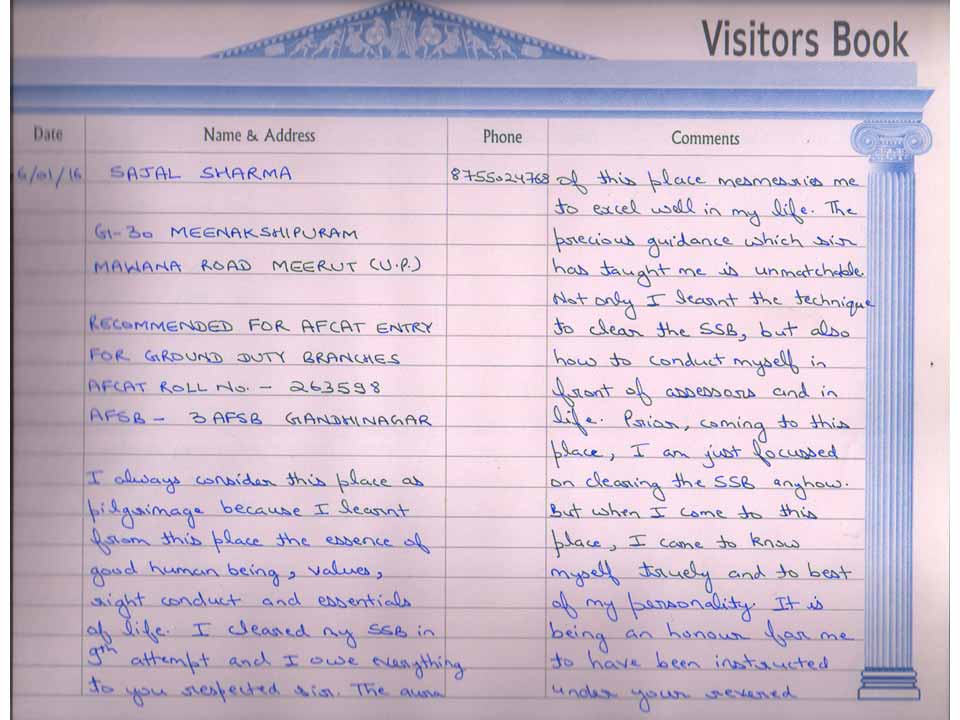 Visitors Book
Date Name & Address Phone Comments
6/01/16 SAJAL SHARMA 8755024768
G1-30 MEENAKSHIPURAM
MAWANA ROAD MEERUT (U.P.)
RECOMMENDED FOR AFCAT ENTRY
FOR GROUND DUTY BRANCHES
AFCAT ROLL No. - 263598
AFSB - 3 AFSB GANDHINAGAR
I always consider this place as
pilgrimage because I learnt
from this place the essence of
good human being, values,
right conduct and essentials
of life. I cleared my SSB in
9th attempt and I owe everything
to you respected sir. The aura
of this place mesmesries me
to excel well in my life. The
precious guidance which sir
has taught me is unmatchable.
Not only I learnt the technique
to clear the SSB, but also
how to conduct myself in
front of assessors and in
life. Prior, coming to this
place, I am just focussed
on clearing the SSB anyhow.
But when I come to this
place, I came to know
myself truely and to best
of my personality. It is
being an honour for me
to have been instructed
under your revered